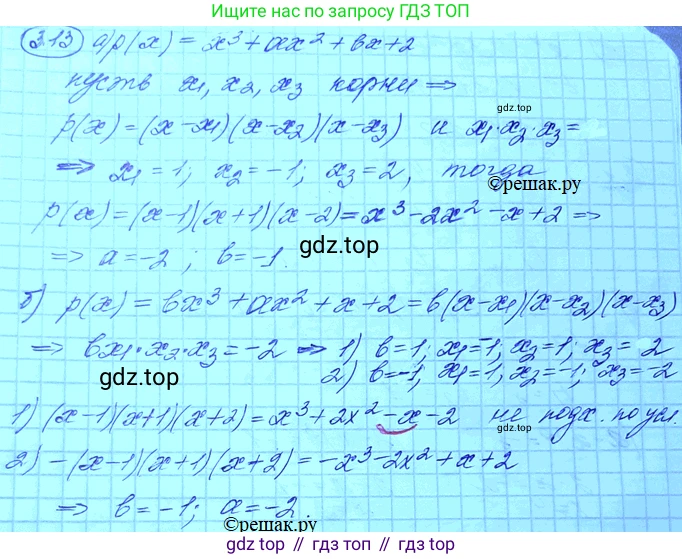 Ищите нас по запросу ГДЗ ТОП
3.13 а) p(x) = x³ + ax² + bx + 2
пусть x₁, x₂, x₃ корни ⇒
p(x) = (x - x₁)(x - x₂)(x - x₃) и x₁·x₂·x₃ =
⇒ x₁ = 1; x₂ = -1; x₃ = 2, тогда
©решак.ру
p(x) = (x-1)(x+1)(x-2) = x³ - 2x² - x + 2 ⇒
gdz.top
⇒ a = -2; b = -1.
б) p(x) = bx³ + ax² + x + 2 = b(x - x₁)(x - x₂)(x - x₃)
⇒ bx₁·x₂·x₃ = -2 ⇒ 1) b = 1, x₁ = 1, x₂ = 1; x₃ = 2
2) b = -1, x₁ = 1, x₂ = -1; x₃ = -2
gdz.top
1) (x-1)(x+1)(x+2) = x³ + 2x² - x - 2 не подх. по усл.
2) -(x-1)(x+1)(x+2) = -x³ - 2x² + x + 2
gdz.top
⇒ b = -1; a = -2.
©решак.ру
gdz.top // гдз.топ // gdz.top